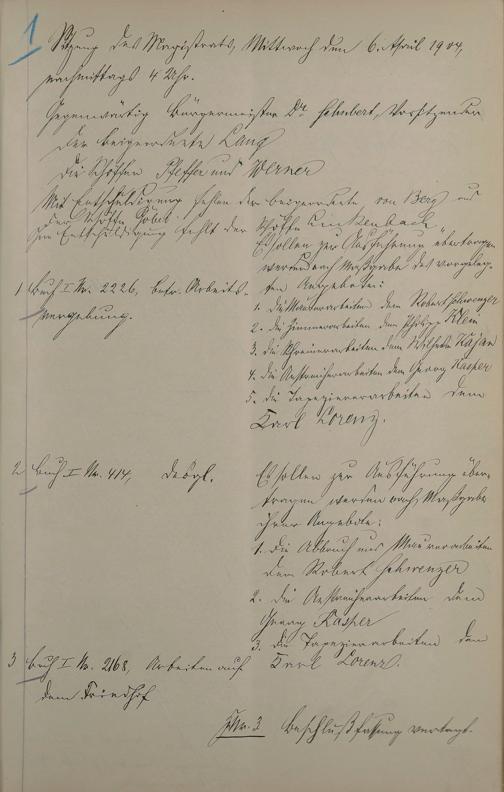 1
Sitzung des Magistrats, Mittwoch den 6. April 1904,
nachmittags 4 Uhr.
Gegenwärtig Bürgermeister Dr. Schubert, Vorsitzender
der Beigeordnete Lang
die Schöffen Pfeffer und Werner
Mit Entschuldigung fehlen der Beigeordnete von Berg und
der Schöffe
Ohne Entschuldigung fehlt der Schöffe Linkenbach.
1 Buch I Nr. 2226, betr. Arbeits-
vergebung.
Es sollen zur Ausführung übertragen
werden nach Maßgabe der vorgeleg-
ten Angebote:
1. die Maurerarbeiten dem Robert Schwenzer
2. die Zimmerarbeiten dem Philipp Klein
3. die Schreinerarbeiten dem Wilhelm
4. die Anstreicherarbeiten dem Georg Kasper
5. die Tapeziererarbeiten dem
Karl Lorenz.
2 Buch I Nr. 414, desgl.
Es sollen zur Ausführung über-
tragen werden nach Maßgabe
ihrer Angebote:
1. die Abbruch und Maurerarbeiten
dem Robert Schwenzer
2. die Anstreicherarbeiten dem
Georg Kasper
3. die Tapezierarbeiten dem
Karl Lorenz.
3 Buch I Nr. 2168, Arbeiten auf
dem Friedhof
Nr. 3 Beschlußfassung vertagt.